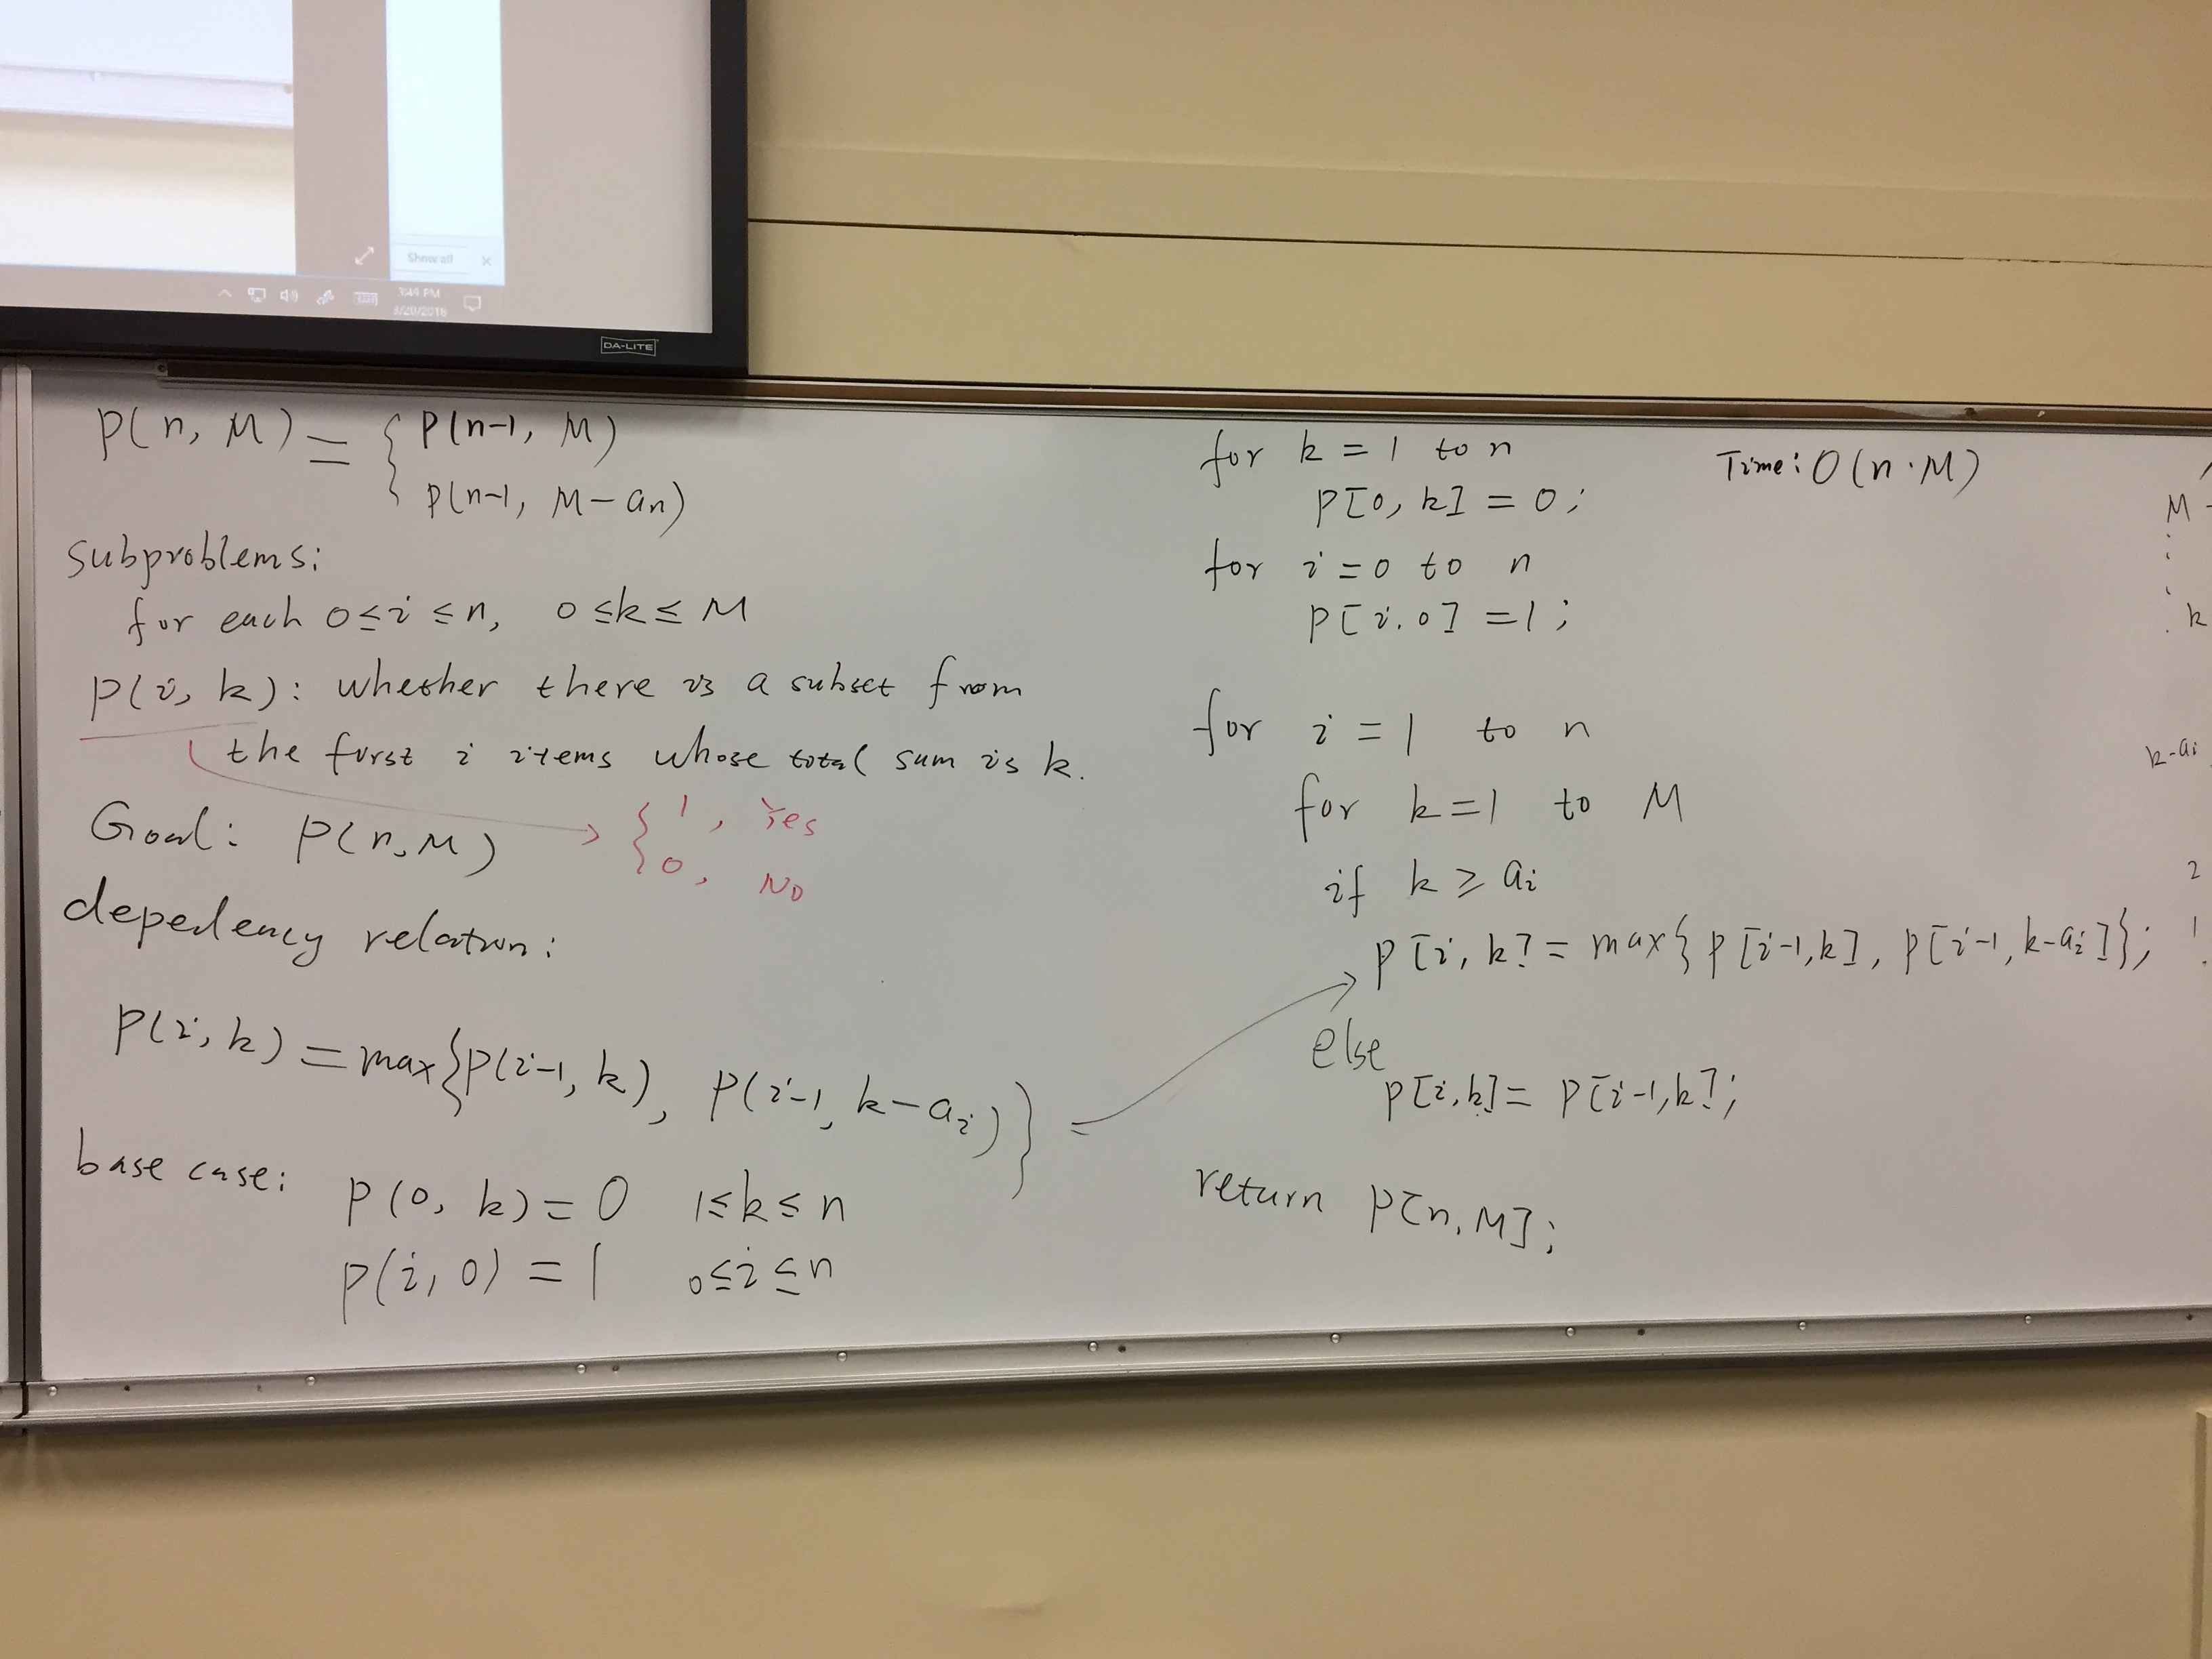 Show all
3:49 PM
3/20/2018
DA-LITE
P(n, M) = { P(n-1, M)
P(n-1, M-an)
Subproblems:
for each 0≤i≤n, 0≤k≤M
P(i, k): whether there is a subset from
the first i items whose total sum is k.
Goal: P(n,M)
{ 1, Yes
0, No
depedency relation:
P(i, k) = max{P(i-1, k), P(i-1, k-ai)}
base case: P(0, k) = 0 1≤k≤n
P(i, 0) = 1 0≤i≤n
for k = 1 to n
P[0, k] = 0;
for i = 0 to n
P[i, 0] = 1;
for i = 1 to n
for k=1 to M
if k ≥ ai
P[i, k] = max{P[i-1,k], P[i-1, k-ai]};
else
P[i,k] = P[i-1,k];
return P[n, M];
Time: O(n·M)
M
k
k-ai
2
1